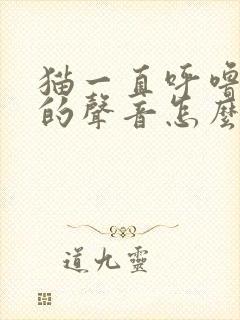 猫一直呼嚕
的聲音怎麼
道九靈